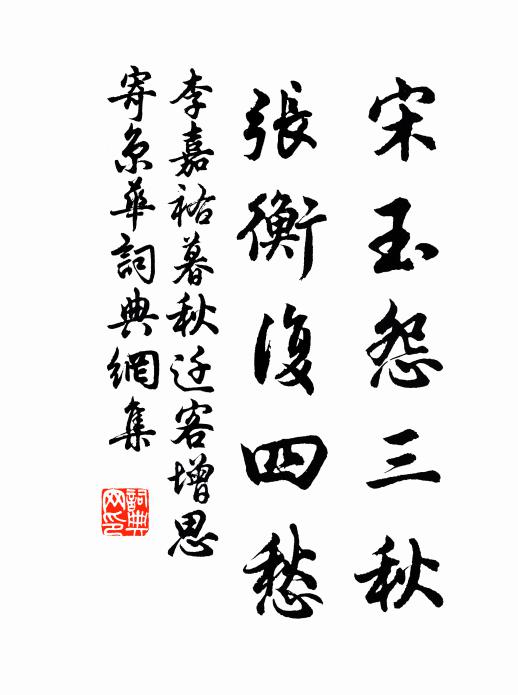 宋玉怨三秋
張衡復四愁
李嘉祐暮秋迁客增思
寄京華詞典網集
詞典
网印